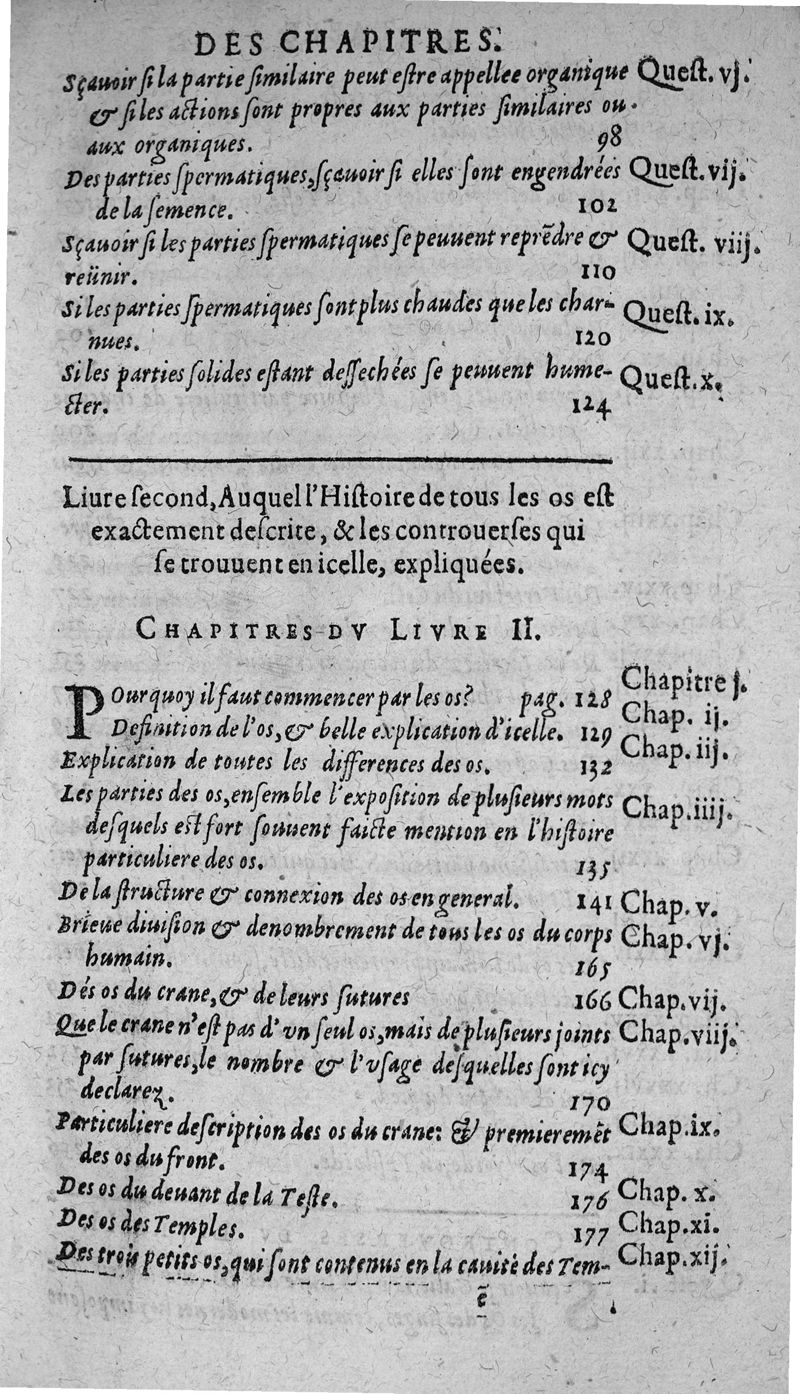 DES CHAPITRES.
Sçauoir si la partie similaire peut estre appellee organique Quest. vj.
& si les actions sont propres aux parties similaires ou
aux organiques. 98
Des parties spermatiques, sçauoir si elles sont engendrées Quest. vij.
de la semence. 102
Sçauoir si les parties spermatiques se peuuent reprẽdre & Quest. viij.
reünir. 110
Si les parties spermatiques sont plus chaudes que les char- Quest. ix.
nues. 120
Si les parties solides estant dessechées se peuuent hume- Quest. x.
cter. 124
Liure second, Auquel l'Histoire de tous les os est
exactement descrite, & les controuerses qui
se trouuent en icelle, expliquées.
CHAPITRES DV LIVRE II.
POurquoy il faut commencer par les os? pag. 128 Chapitre j.
Definition de l'os, & belle explication d'icelle. 129 Chap. ij.
Explication de toutes les differences des os. 132 Chap. iij.
Les parties des os, ensemble l'exposition de plusieurs mots Chap. iiij.
desquels est fort souuent faicte mention en l'histoire
particuliere des os. 135
De la structure & connexion des os en general. 141 Chap. v.
Brieue diuision & denombrement de tous les os du corps Chap. vj.
humain. 165
Dés os du crane, & de leurs sutures 166 Chap. vij.
Que le crane n'est pas d'vn seul os, mais de plusieurs joints Chap. viij.
par sutures, le nombre & l'vsage desquelles sont icy
declarez. 170
Particuliere description des os du crane: & premieremẽt Chap. ix.
des os du front. 174
Des os du deuant de la Teste. 176 Chap. x.
Des os des Temples. 177 Chap. xi.
Des trois petits os, qui sont contenus en la cauité des Tem- Chap. xij.
ẽ